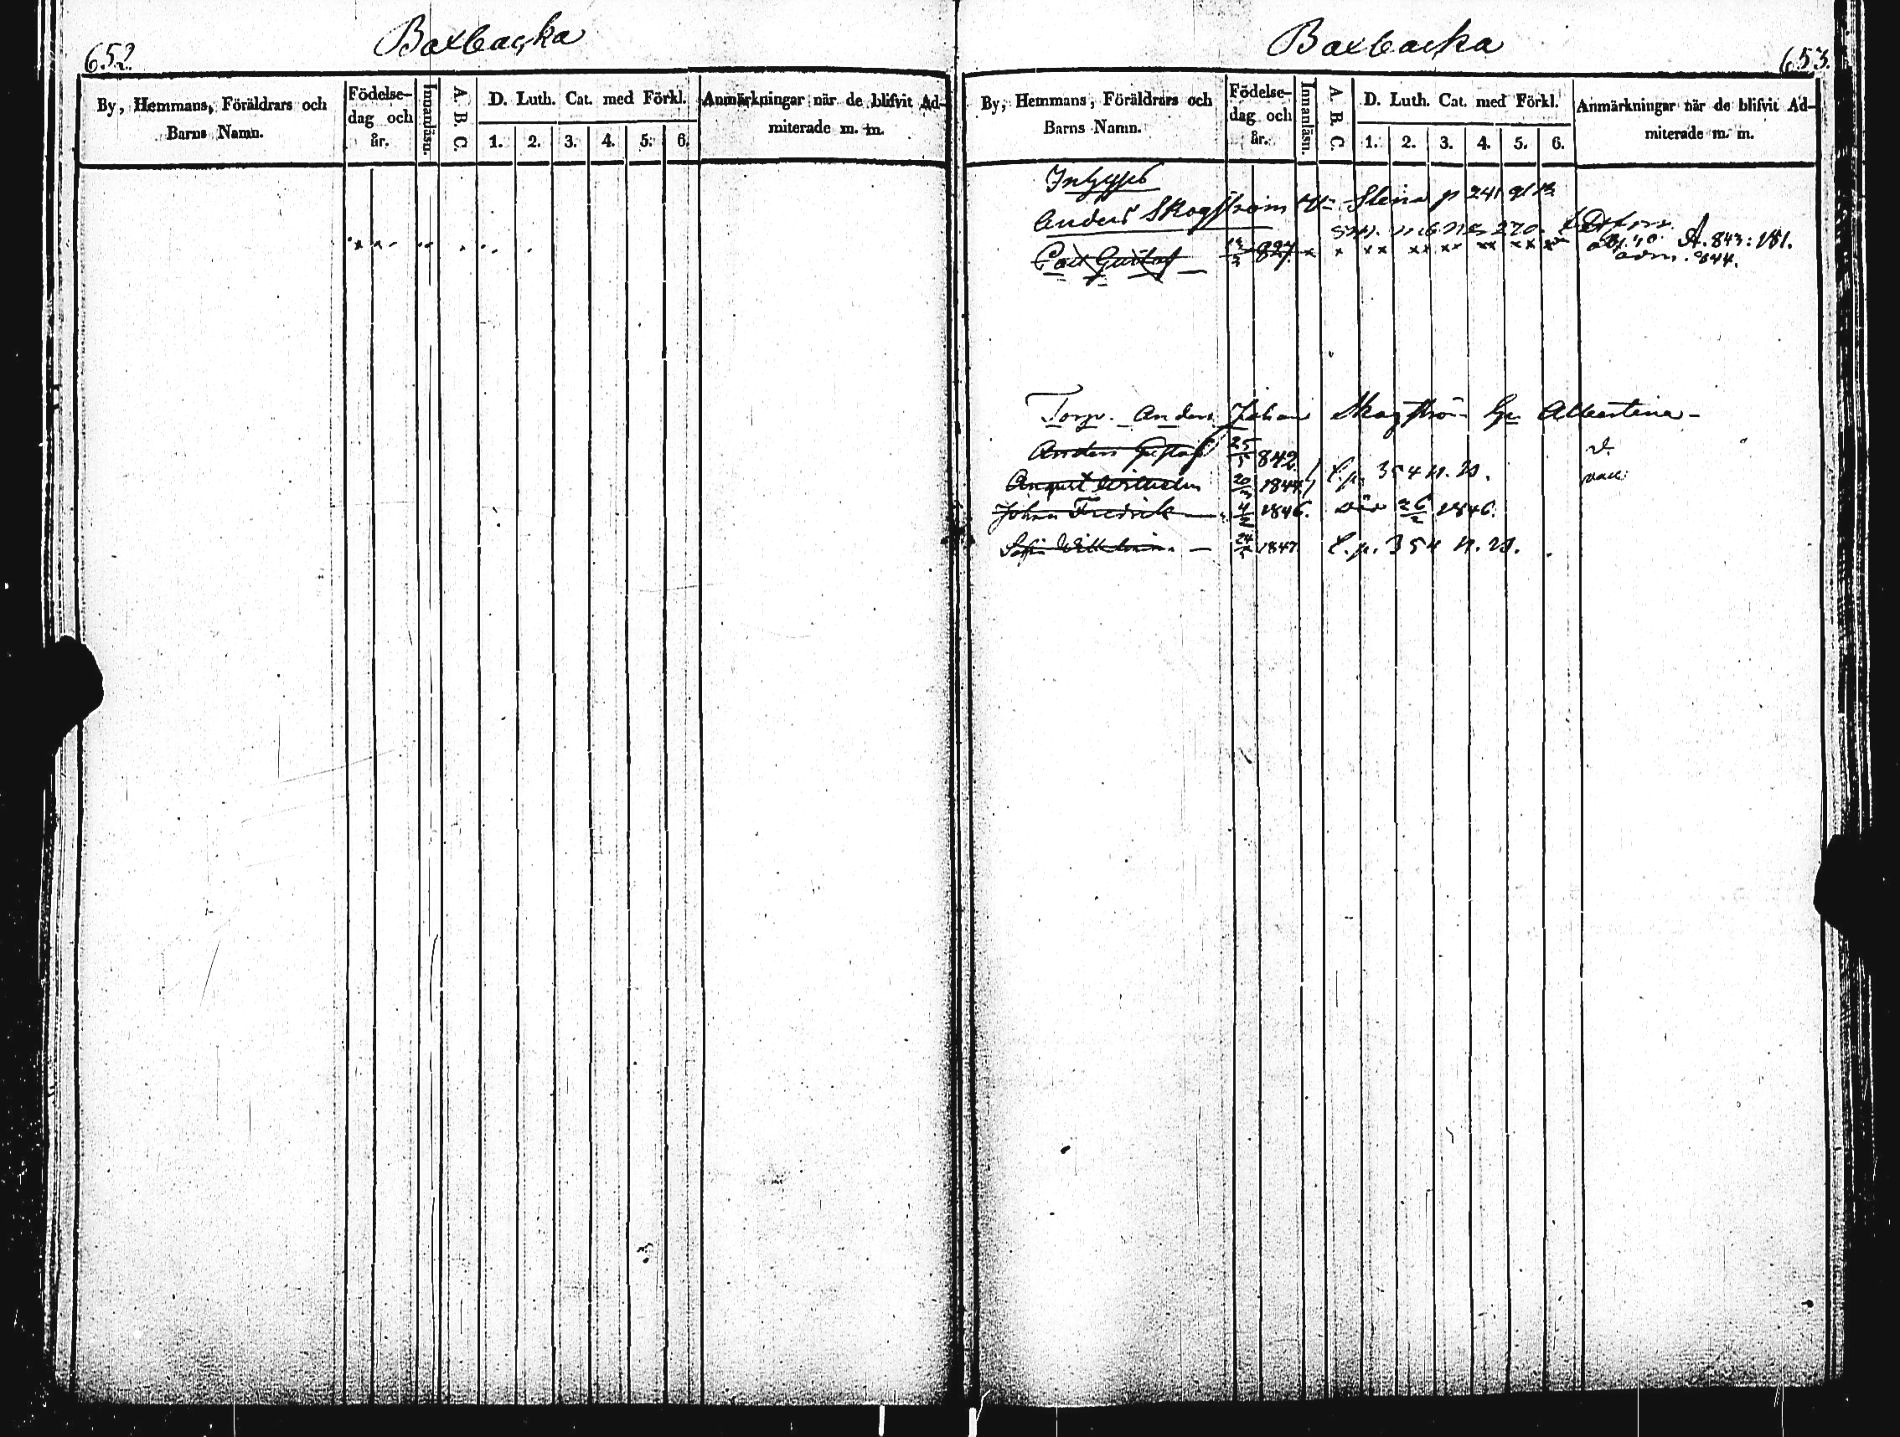 652.
Boxbacka
By, Hemmans, Föräldrars och
Barns Namn.
Födelse-
dag och
år.
Innanläsn.
A. B. C.
D. Luth. Cat. med Förkl.
1. 2. 3. 4. 5. 6.
Anmärkningar när de blifvit Ad-
miterade m. m.
Boxbacka
653.
By, Hemmans, Föräldrars och
Barns Namn.
Födelse-
dag och
år.
Innanläsn.
A. B. C.
D. Luth. Cat. med Förkl.
1. 2. 3. 4. 5. 6.
Anmärkningar när de blifvit Ad-
miterade m. m.
Inhyses
Anders Skogström Stina p 241
270.
Carl Gustaf 827. A. 843: 181.
adm. 844.
Torp. Anders Johan Skogström Albertina
Anders Gustaf 25/5 842 v.
August Wilhelm 1844 l.p. 354 n. B. vacc:
Johan Fredrik 4/2 1846. död 26/2 1846.
Sofia Wilhelmina 24/5 1847 l.p. 354 n. B.